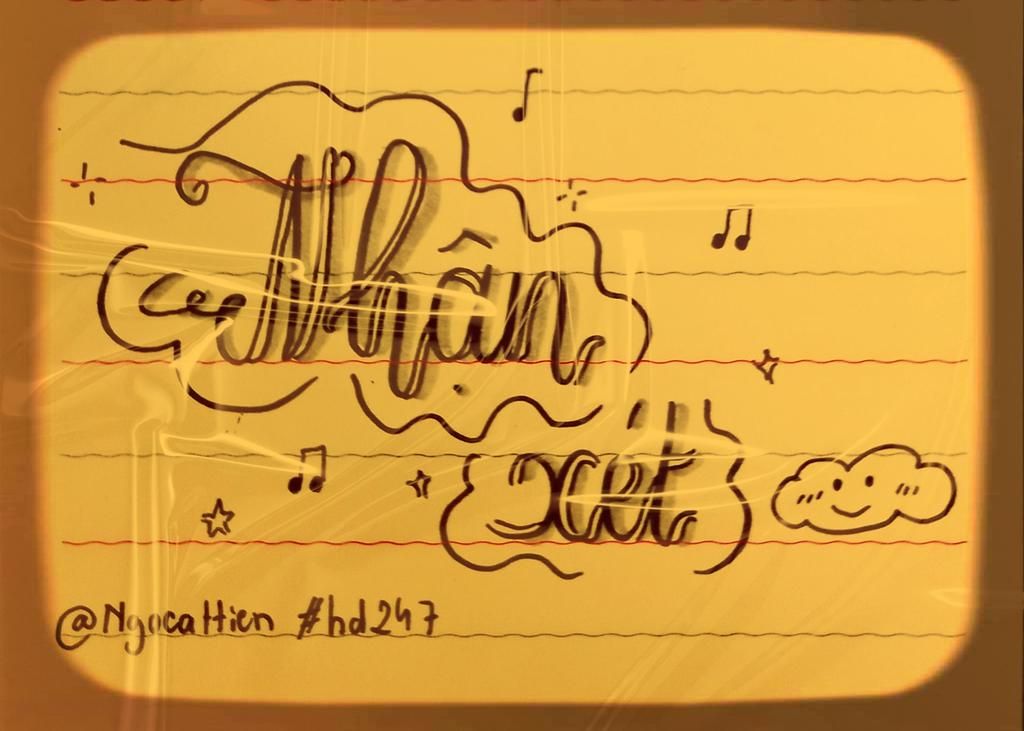 Nhận
xét
@Ngocattien #hd247